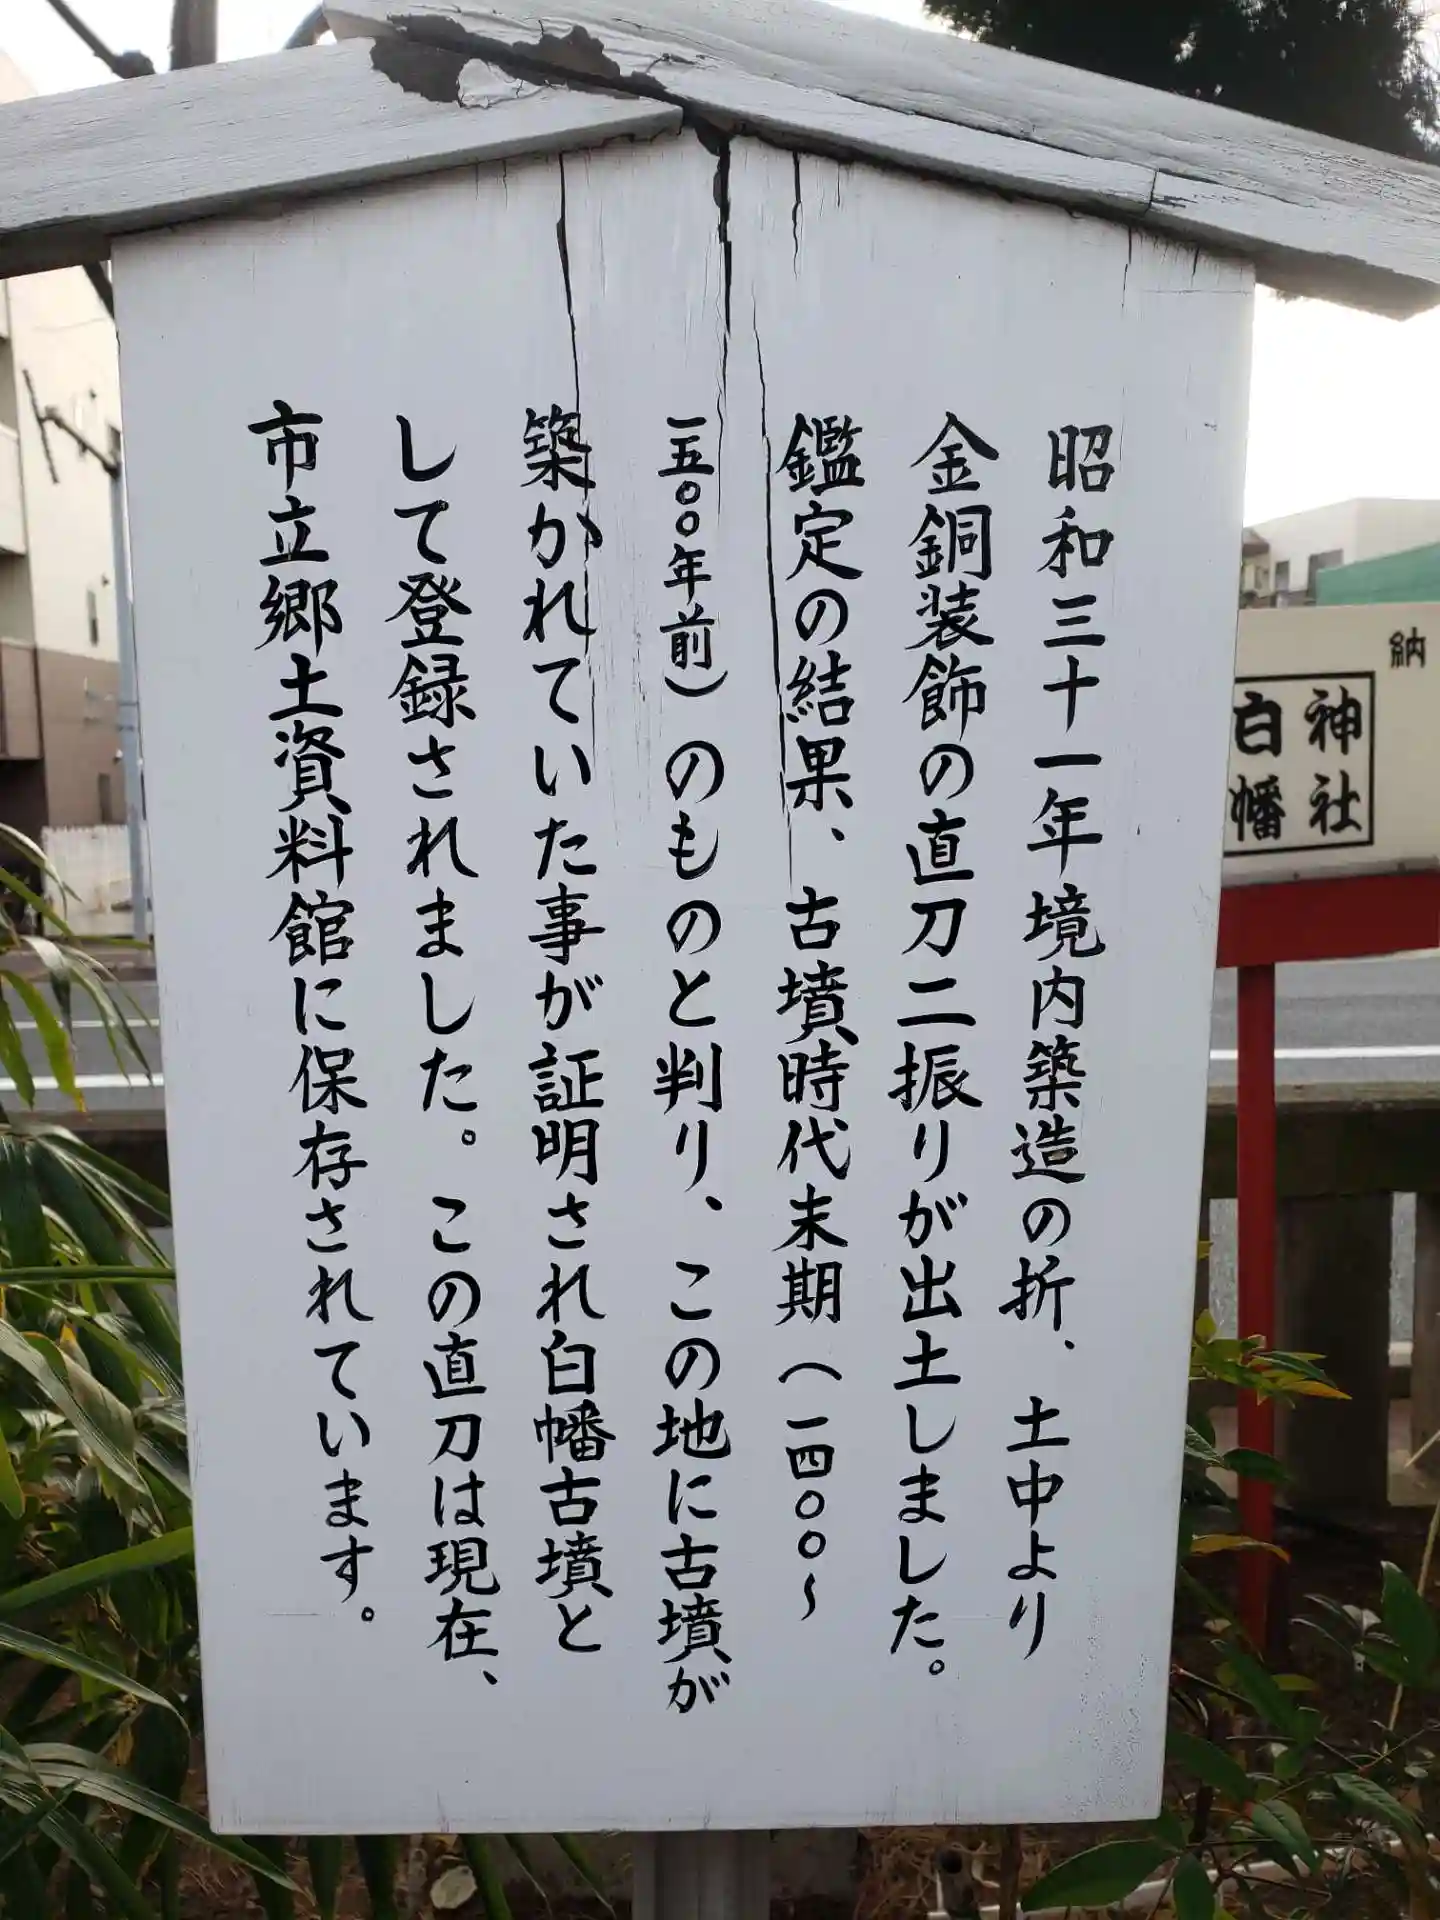 昭和三十一年境内築造の折、土中より
金銅装飾の直刀二振りが出土しました。
鑑定の結果、古墳時代末期（一四〇〇～
一五〇〇年前）のものと判り、この地に古墳が
築かれていた事が証明され白幡古墳と
して登録されました。この直刀は現在、
市立郷土資料館に保存されています。
納
神社
白幡